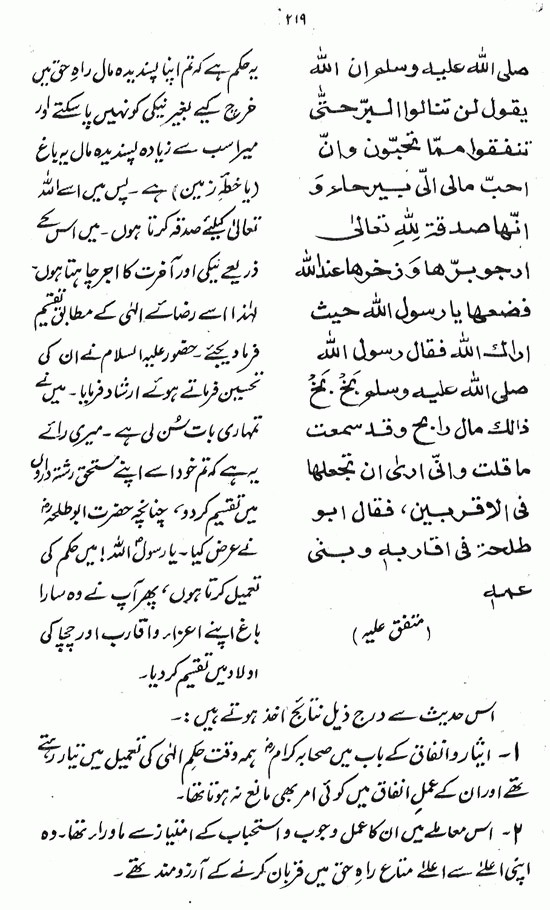 ۲۱۹
صلی الله علیه وسلم ان الله
یقول لن تنالوا البرّ حتّٰی
تنفقوا ممّا تحبّون وانّ
احبّ مالی الیّ بیرحاء و
انّها صدقة لِلّٰهِ تعالٰی
ارجو برّها و ذخرها عند الله
فضعها یا رسول الله حیث
اراك الله فقال رسول الله
صلی الله علیه وسلم بَخْ بَخْ
ذالك مال رابح وقد سمعت
ما قلت وانّی اریٰ ان تجعلها
فی الاقربین، فقال ابو
طلحة فی اقاربه وبنی
عمه
(متفق علیہ)
یہ حکم ہے کہ تم اپنا پسندیدہ مال راہِ حق میں
خرچ کیے بغیر نیکی کو نہیں پا سکتے اور
میرا سب سے زیادہ پسندیدہ مال یہ باغ
(یا خطۂ زمین) ہے۔ پس میں اسے اللہ
تعالیٰ کیلئے صدقہ کرتا ہوں۔ میں اس کے
ذریعے نیکی اور آخرت کا اجر چاہتا ہوں
لہٰذا اسے رضائے الٰہی کے مطابق تقسیم
فرما دیجئے۔ حضور علیہ السلام نے ان کی
تحسین فرماتے ہوئے ارشاد فرمایا۔ میں نے
تمہاری بات سُن لی ہے۔ میری رائے
یہ ہے کہ تم خود اسے اپنے مستحق رشتہ داروں
میں تقسیم کر دو، چنانچہ حضرت ابو طلحہؓ
نے عرض کیا۔ یا رسول اللہ! میں حکم کی
تعمیل کرتا ہوں، پھر آپ نے وہ سارا
باغ اپنے اعزاء و اقارب اور چچا کی
اولاد میں تقسیم کر دیا۔
اس حدیث سے درج ذیل نتائج اخذ ہوتے ہیں:۔
۱۔ ایثار و انفاق کے باب میں صحابہ کرامؓ ہمہ وقت حکمِ الٰہی کی تعمیل میں تیار رہتے
تھے اور ان کے عملِ انفاق میں کوئی امر بھی مانع نہ ہوتا تھا۔
۲۔ اس معاملے میں ان کا عمل وجوب و استحباب کے امتیاز سے ماوراء تھا۔ وہ
اپنی اعلیٰ سے اعلیٰ متاع راہِ حق میں قربان کرنے کے آرزومند تھے۔